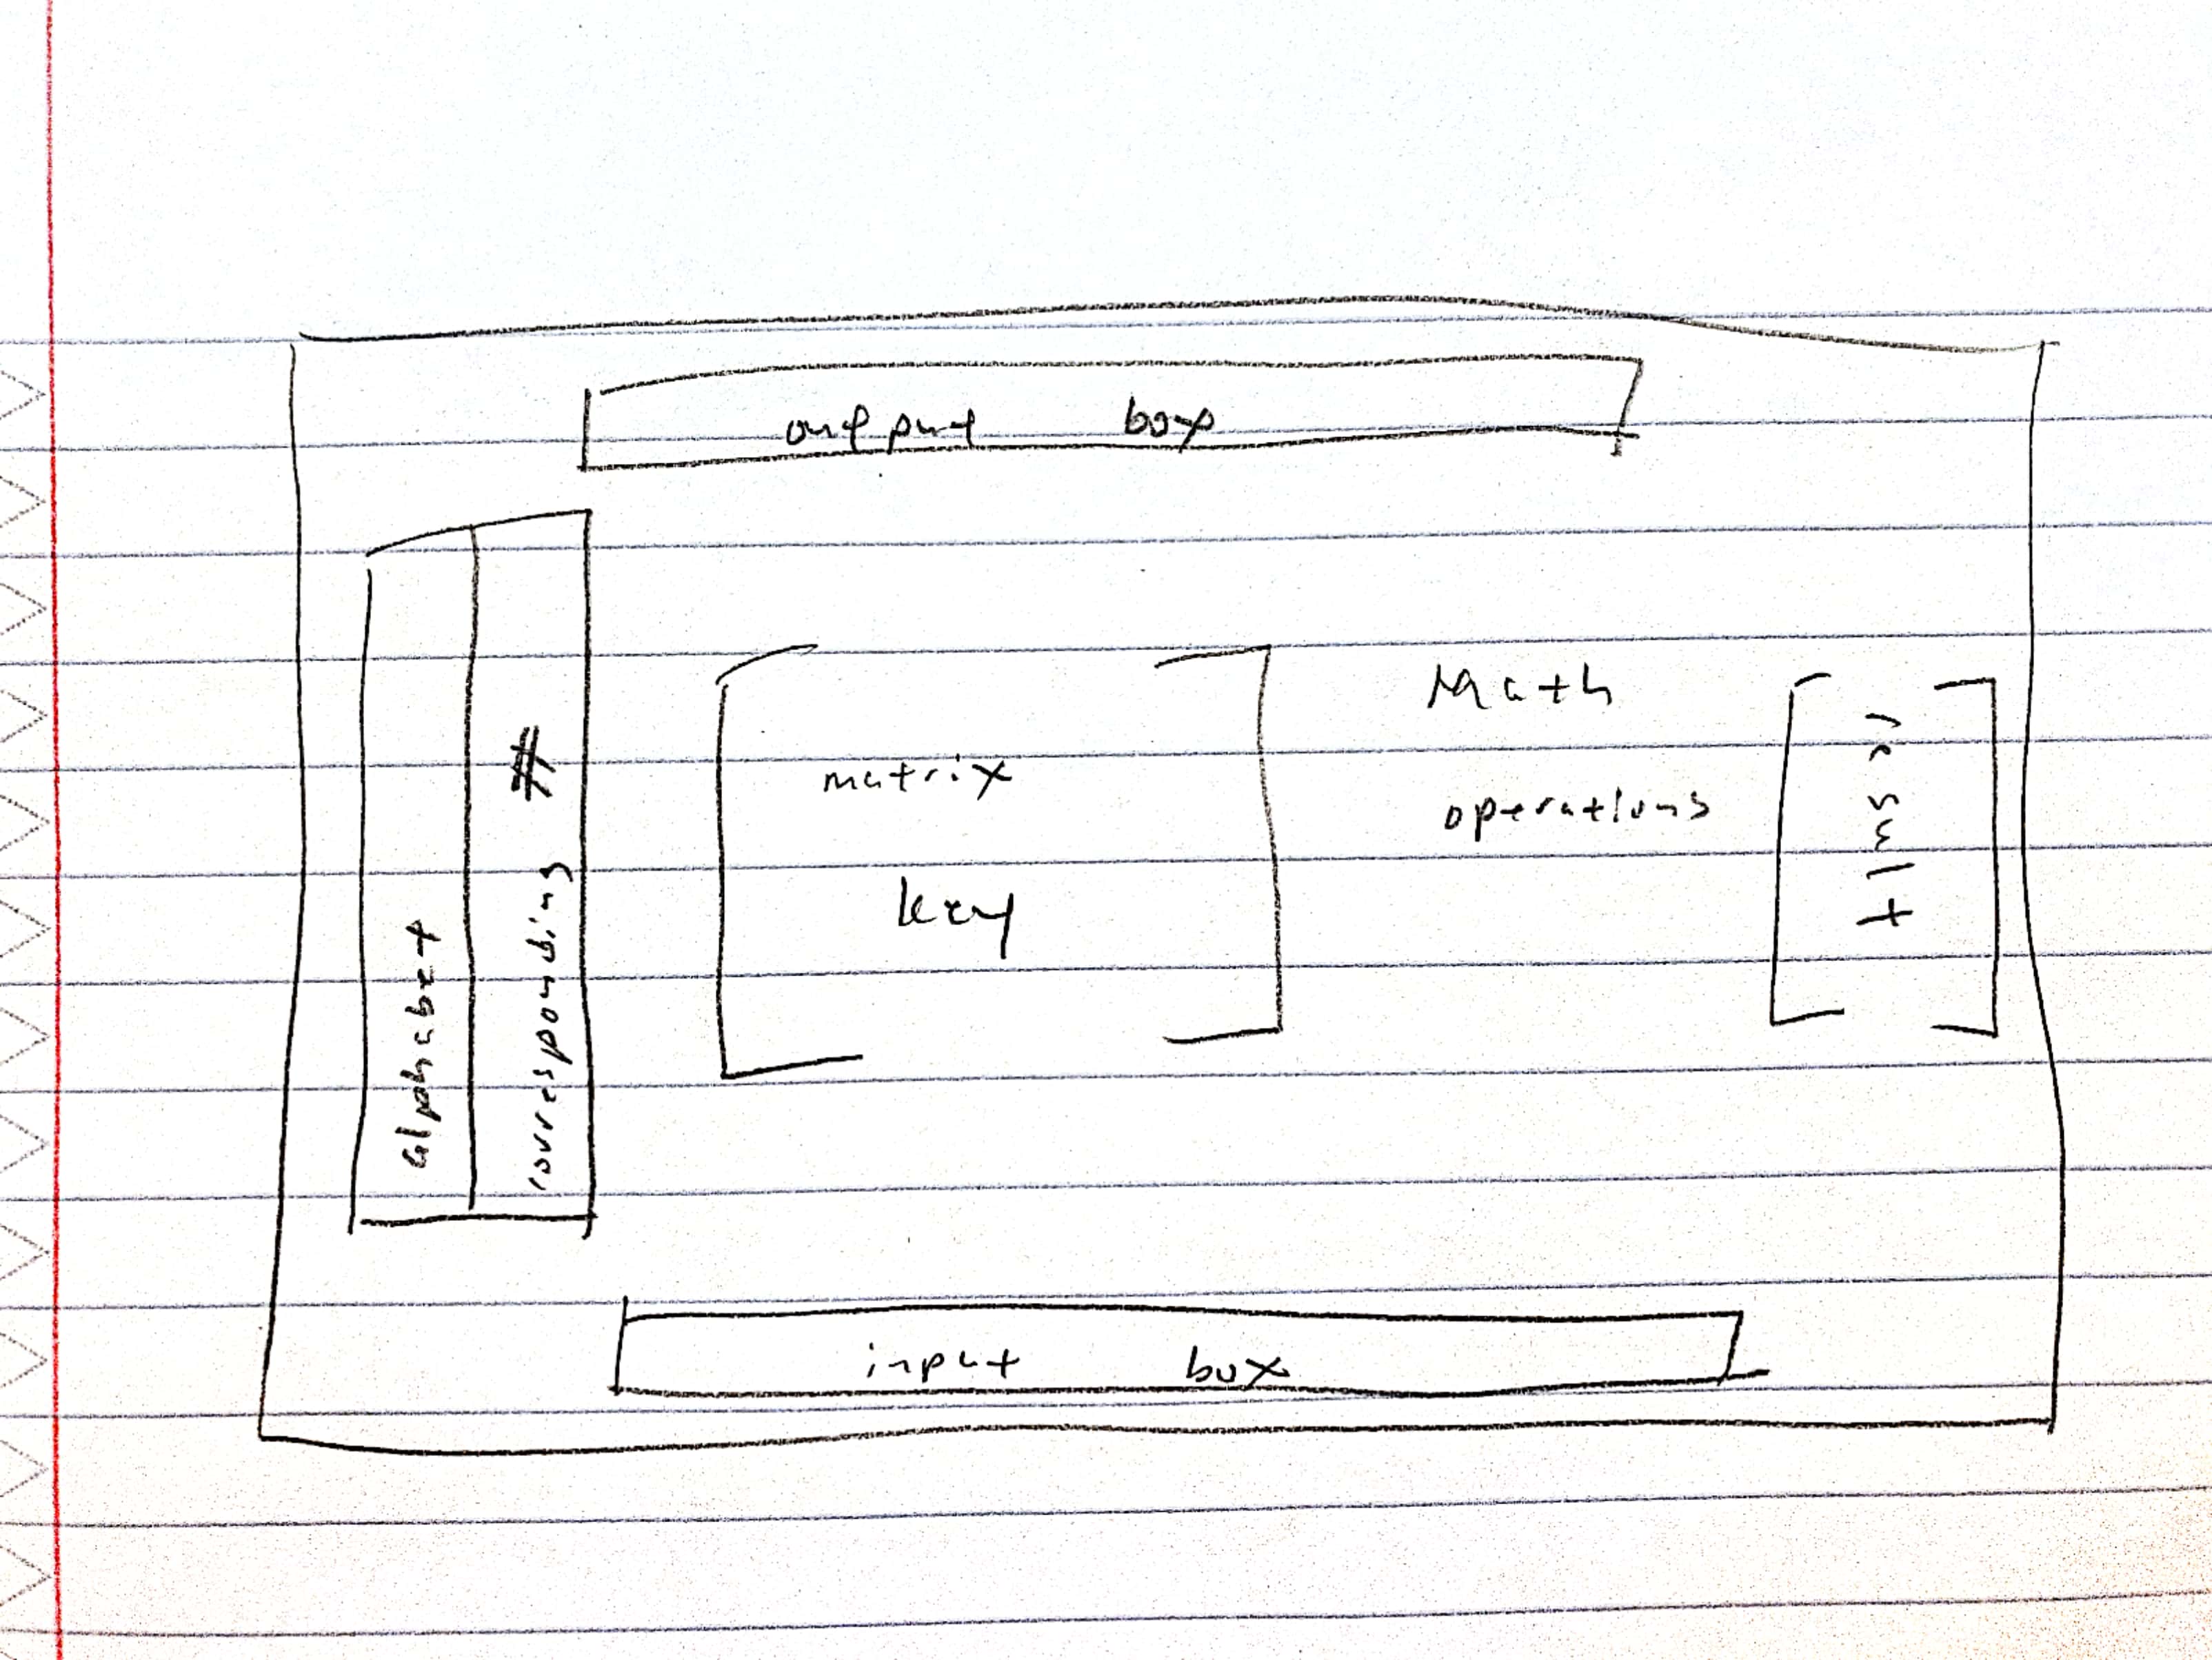 output box
alphabet
corresponding #
matrix
key
Math
operations
result
input box